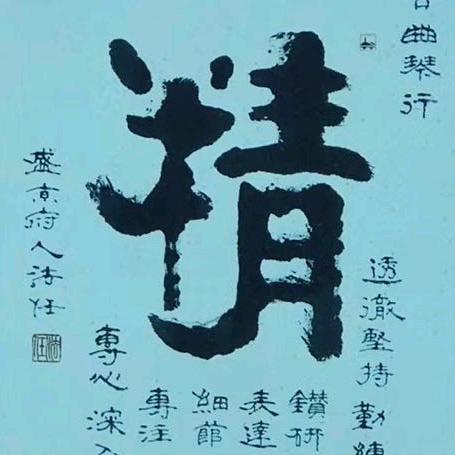 精
古曲琴行
透徹堅持
勤練
鑽研
表達
細節
專注
專心深入
盛京府人法任